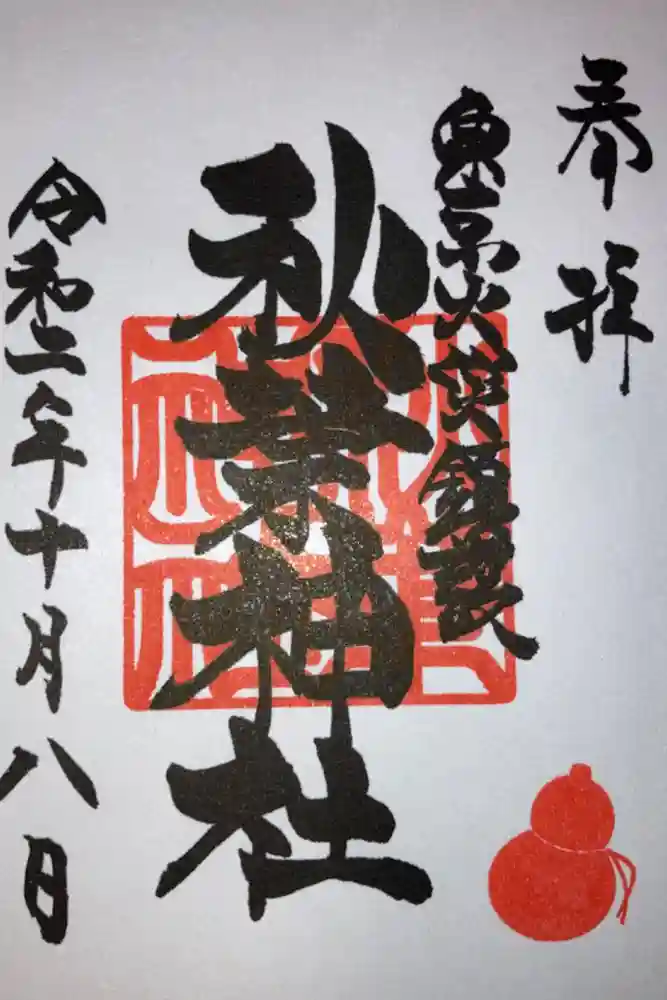 奉拝
東京火災鎮護
秋葉神社
令和二年十月八日